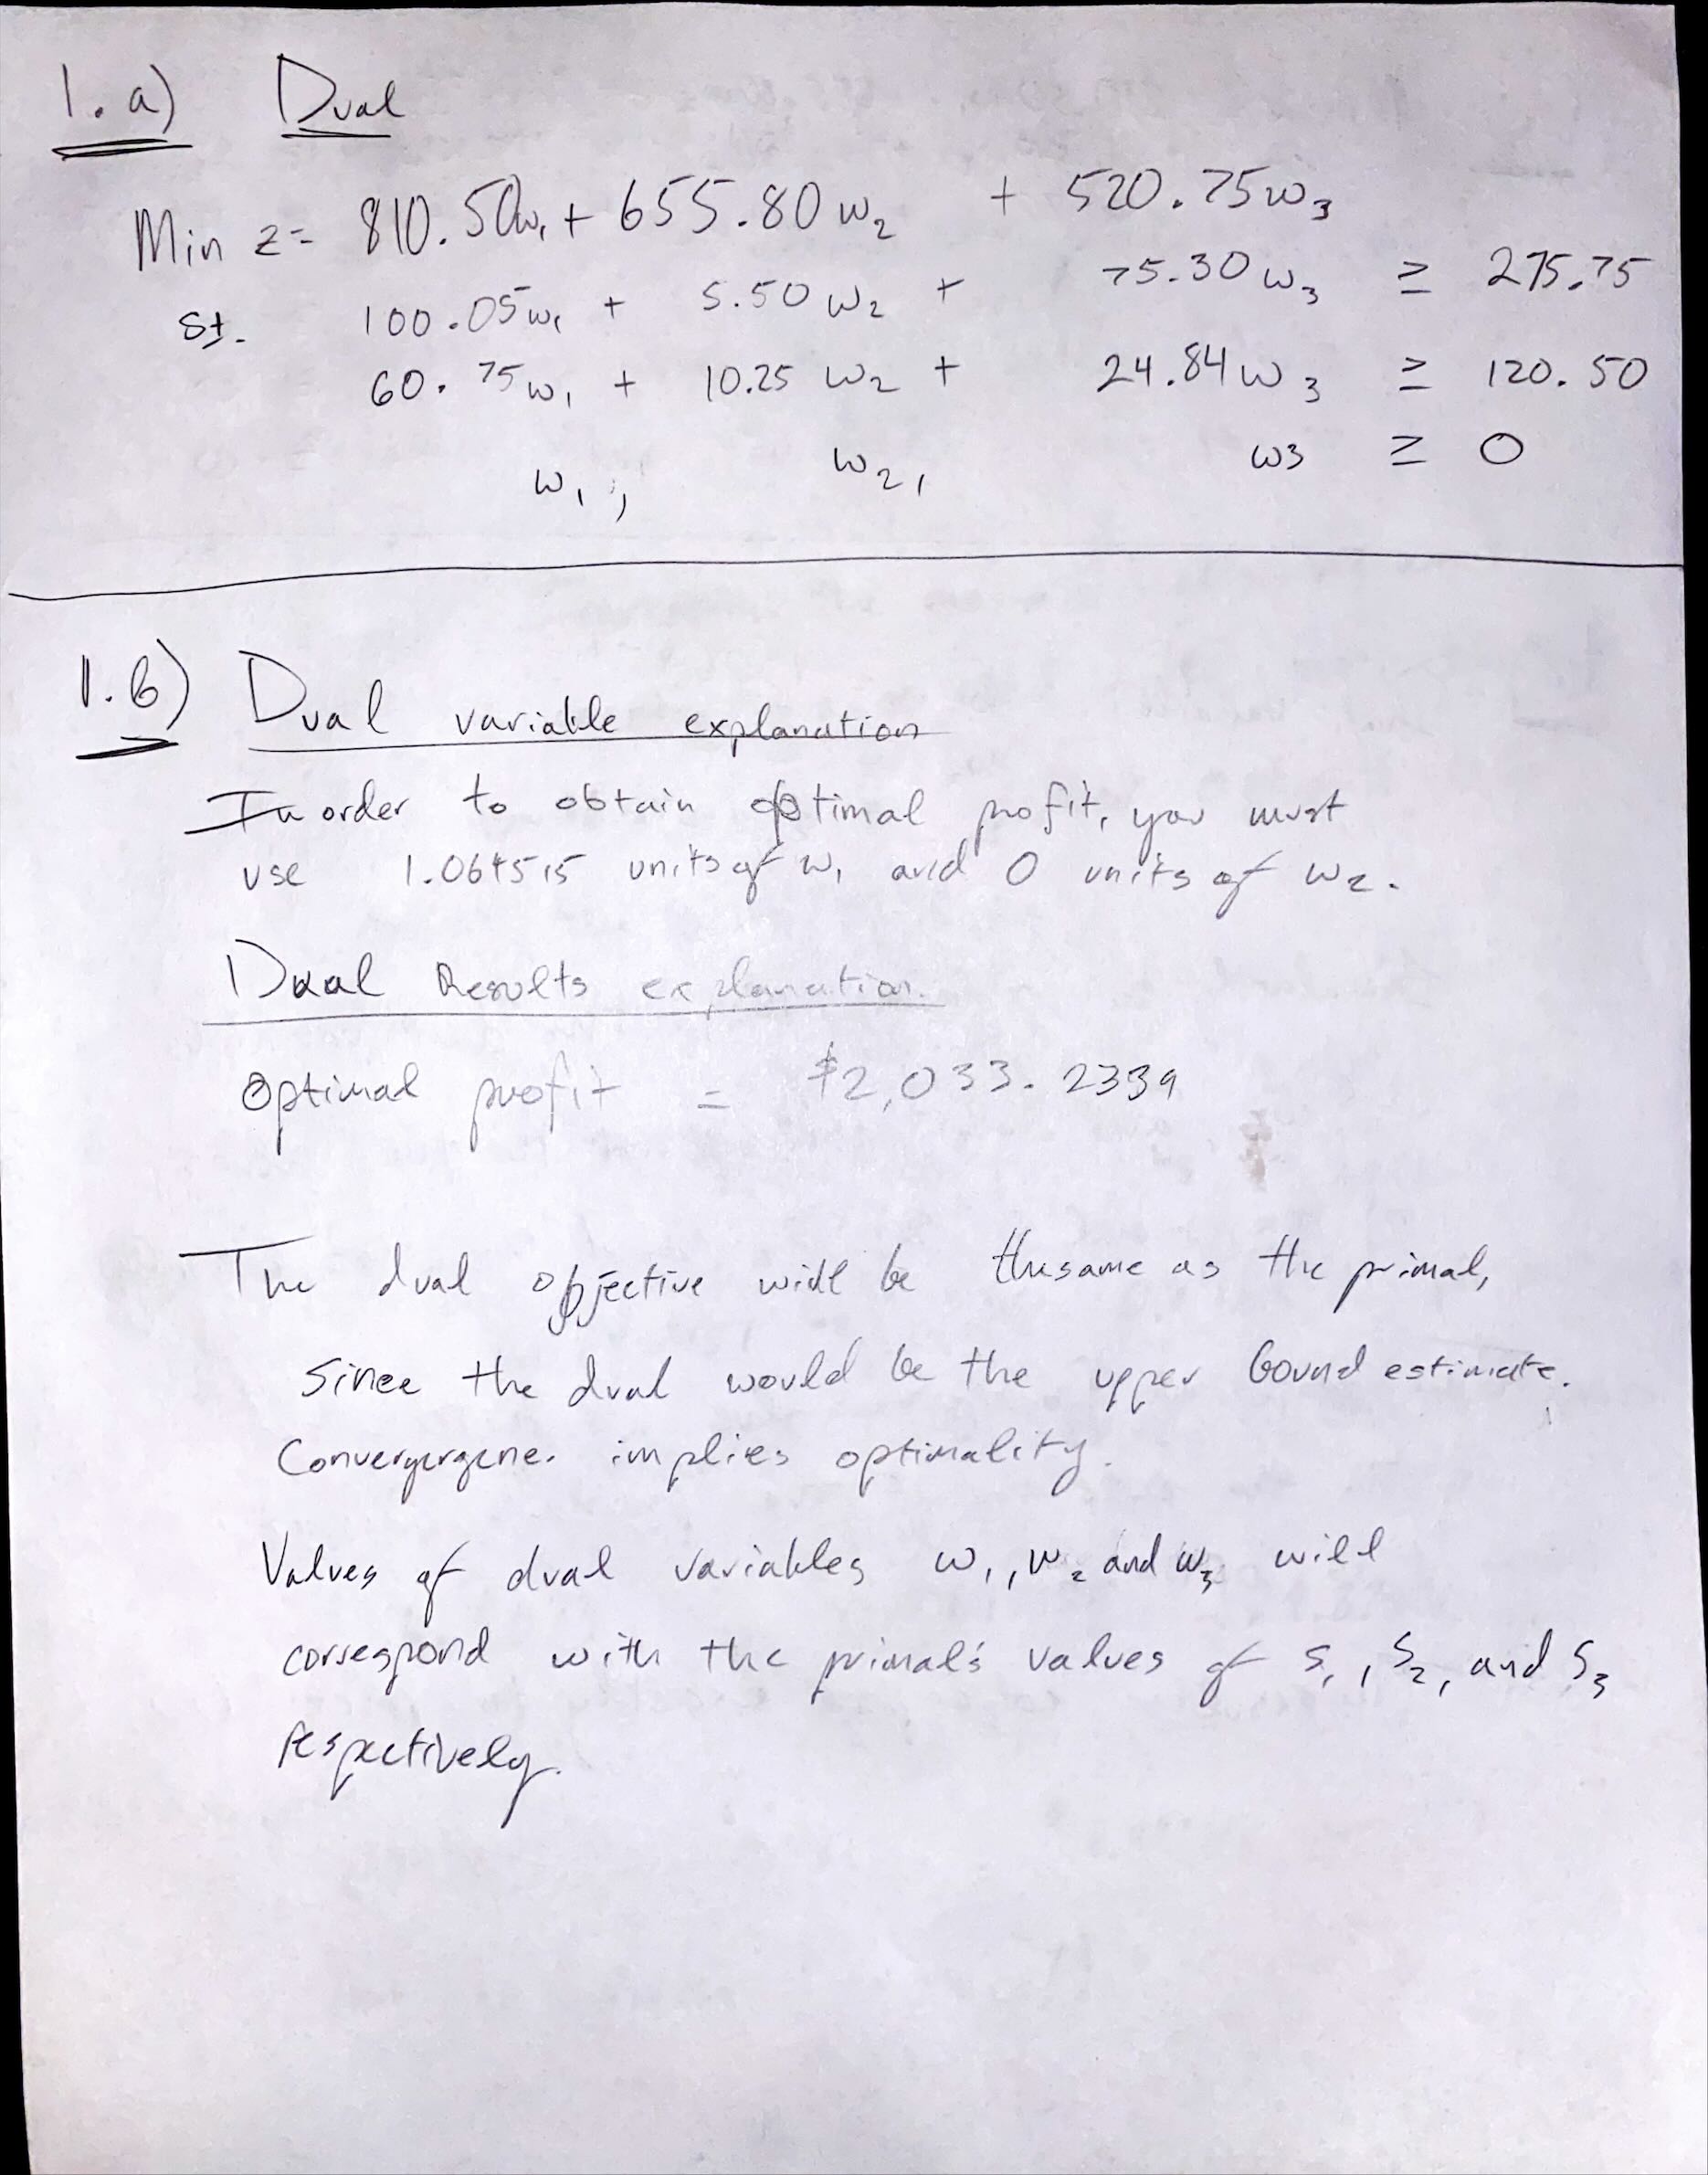 1. a) Dual
Min z = 810.50w₁ + 655.80 w₂ + 520.75w₃
st. 100.05w₁ + 5.50 w₂ + 75.30 w₃ ≥ 275.75
60.75w₁ + 10.25 w₂ + 24.84w₃ ≥ 120.50
w₁, w₂, w3 ≥ 0
1.b) Dual variable explanation
In order to obtain optimal profit, you must
use units of w₁ and 0 units of w₂.
Dual Results explanation.
Optimal profit = $2,033.2339
The dual objective will be the same as the primal,
since the dual would be the upper bound estimate.
implies optimality.
Values of dual variables w₁, w₂ and w₃ will
correspond with the primal's values of s₁, s₂, and s₃
respectively.